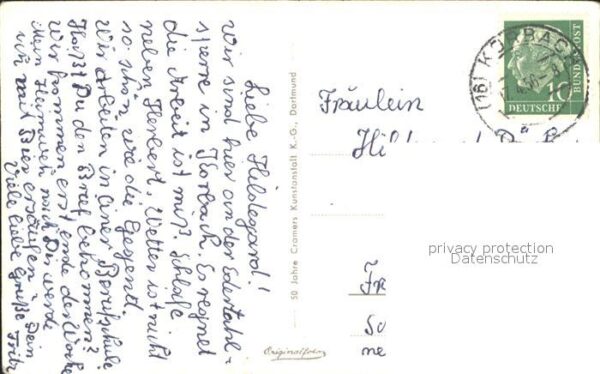 Liebe Hildegard!
Wir sind hier an der Edertahl=
sperre in Korbach. Es regnet
die Arbeit ist mieß. Schlafe
neben Herbert. Wetter ist nicht
so schön wie die Gegend.
Wir arbeiten in einer Berufschule
Hast Du den Brief bekommen?
Wir kommen erst ende der Woche
Mein Heimweh nach Dir werde
ich mit Bier ersäufen. Dein
Viele liebe Grüße Fritz
50 Jahre Cramers Kunstanstalt K.-G., Dortmund
Originalfoto
(16) KORBACH
10
DEUTSCHE
BUNDESPOST
Fräulein
privacy protection
Datenschutz